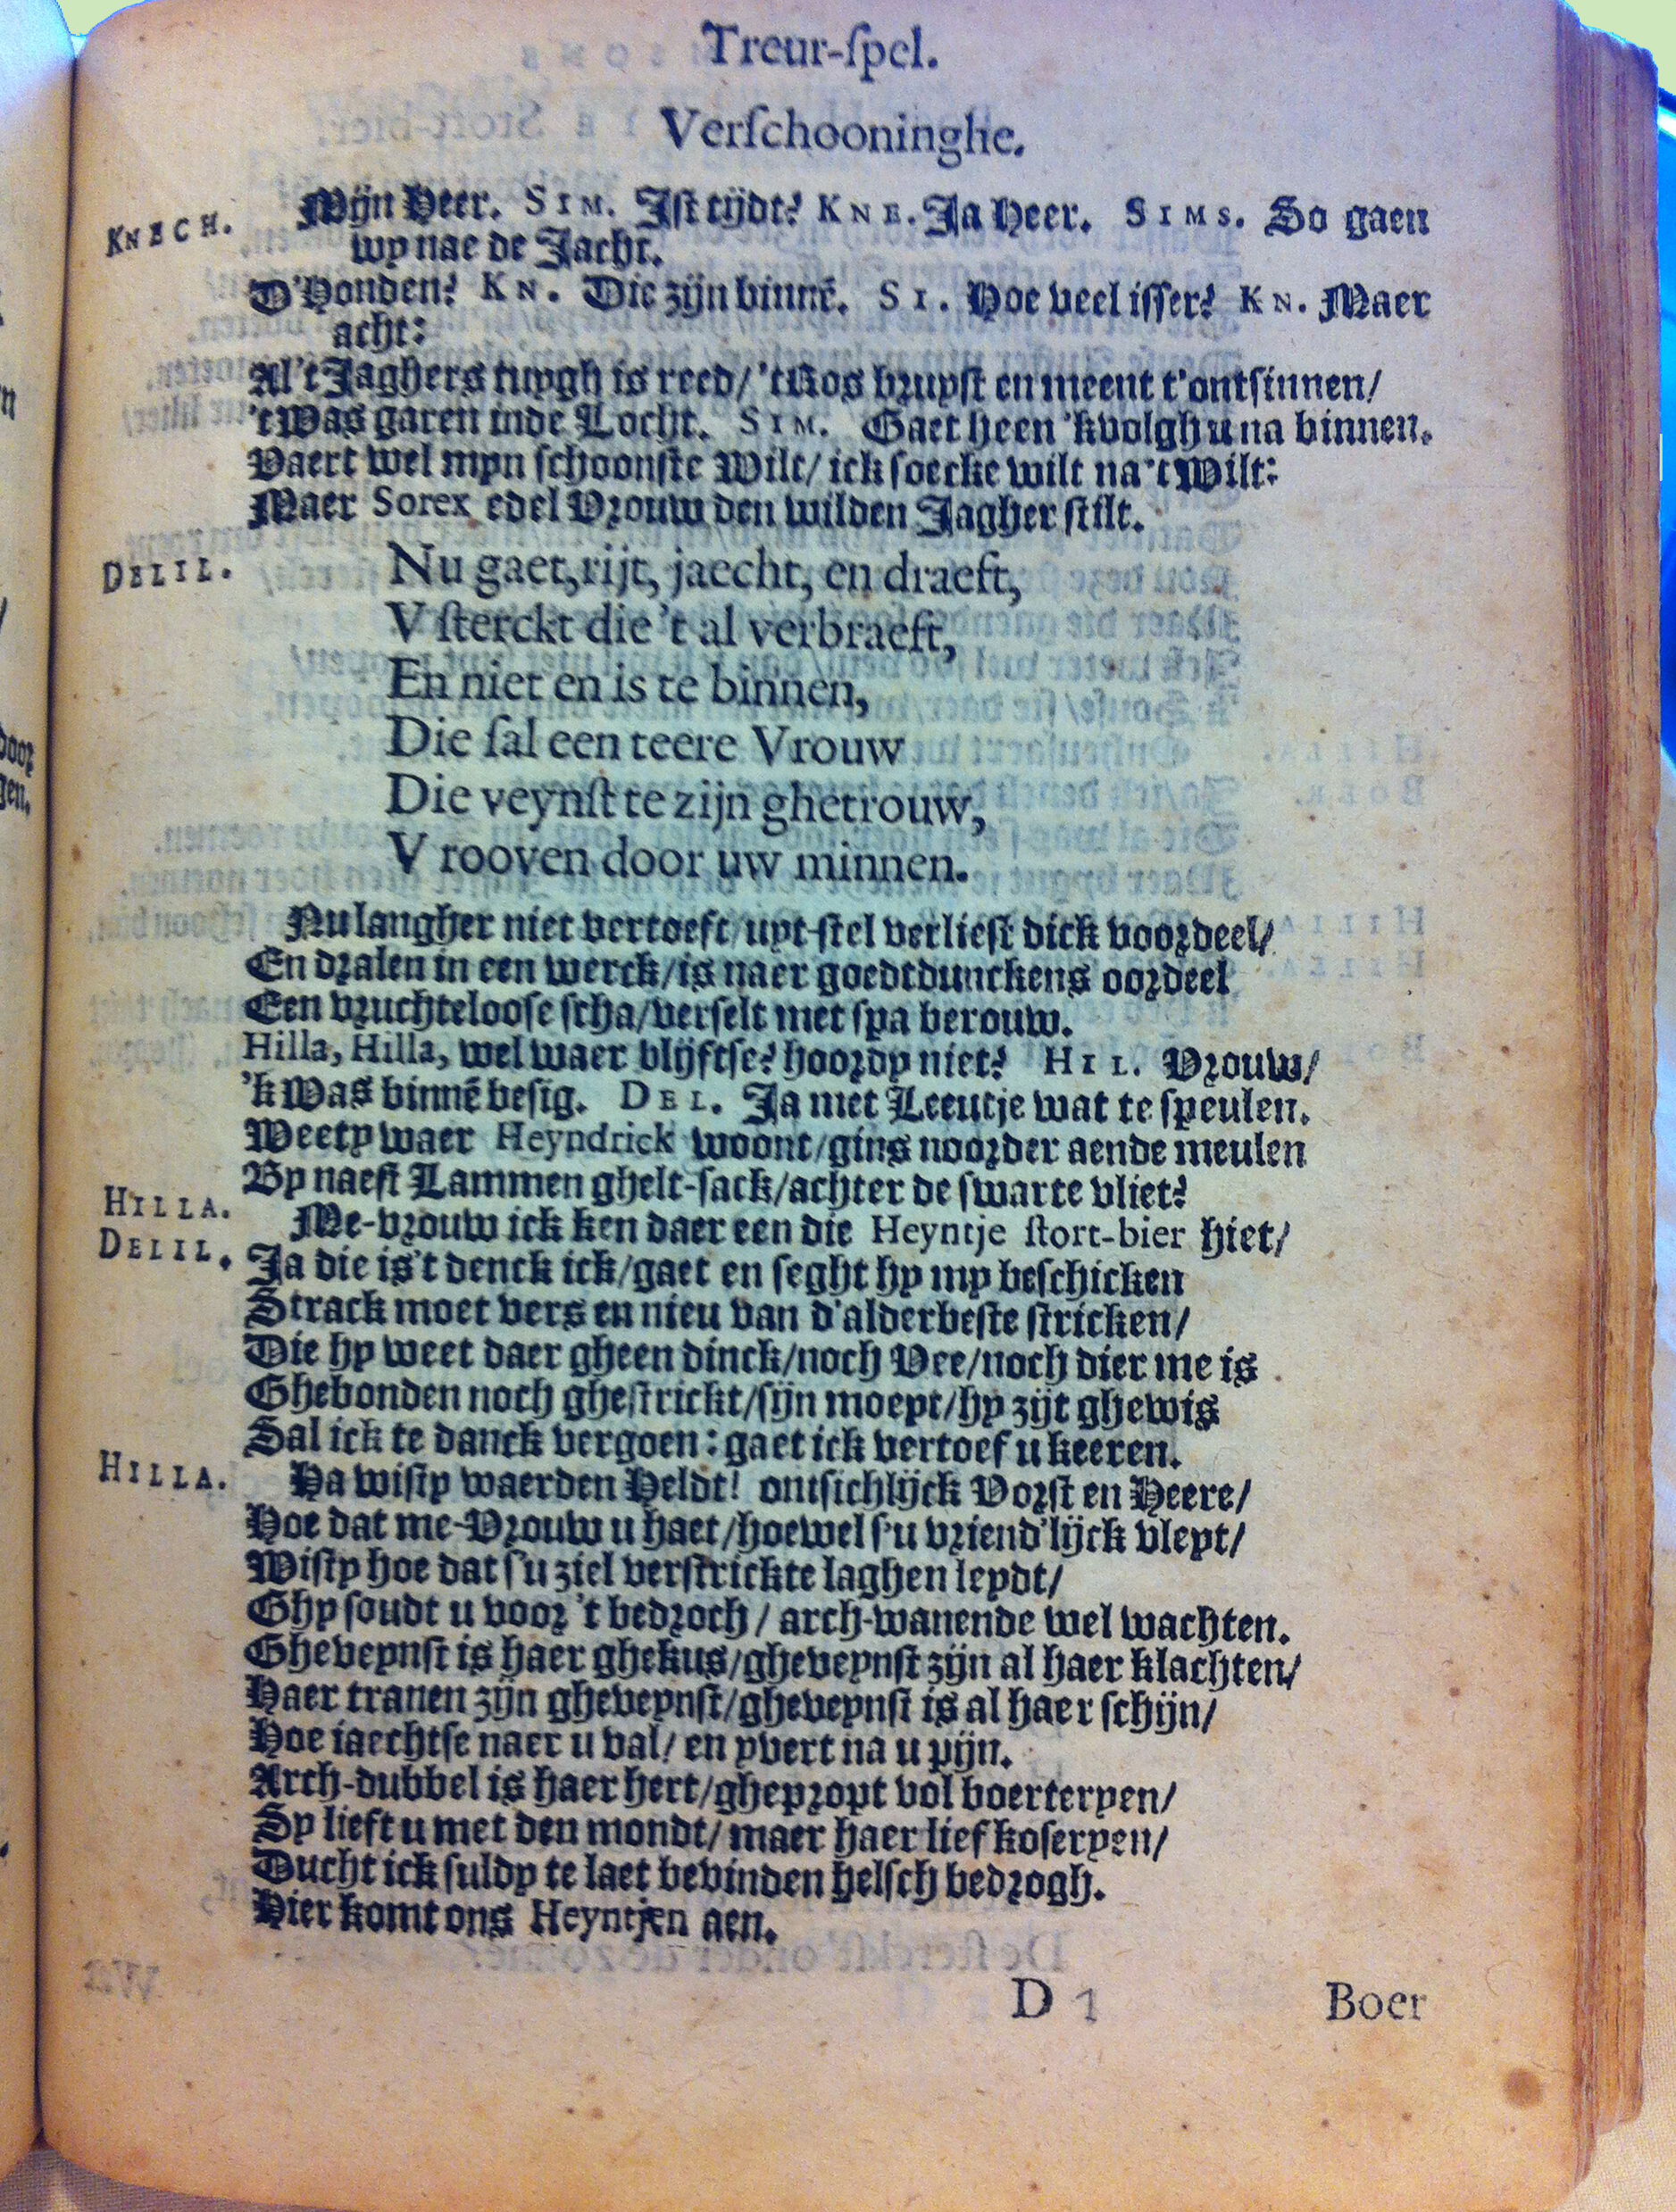 Treur-ſpel.
Verſchooninghe.
KNECH. Mijn Heer. SIM. Jſt tijdt? KNE. Ja Heer. SIMS. So gaen
wy nae de Jacht.
D'Honden? KN. Die zijn binnē. SI. Hoe veel iſſer? KN. Maer
acht:
Al't Jaghers tuygh is reed/ 'tRos bruyſt en meent t'ontſinnen/
't Was garen inde Locht. SIM. Gaet heen 'k volgh u na binnen.
Vaert wel myn ſchoonſte Wilt/ ick ſoecke wilt na't Wilt:
Maer Sorex edel Vrouw den wilden Jagher ſtilt.
DELIL. Nu gaet, rijt, jaecht, en draeft,
V ſterckt die 't al verbraeft,
En niet en is te binnen,
Die ſal een teere Vrouw
Die veynſt te zijn ghetrouw,
V rooven door uw minnen.
Nu langher niet vertoeft/ uyt-ſtel verlieſt dick voordeel/
En dralen in een werck/ is naer goedtdunckens oordeel
Een vruchtelooſe ſcha/ verſelt met ſpa berouw.
Hilla, Hilla, wel waer blijftſe? hoordy niet? HIL. Vrouw/
'k Was binnē beſig. DEL. Ja met Leeutje wat te ſpeulen.
Weety waer Heyndrick woont/ gins noorder aende meulen
By naeſt Lammen ghelt-ſack/ achter de ſwarte vliet?
HILLA. Me-vrouw ick ken daer een die Heyntje ſtort-bier hiet/
DELIL. Ja die is't denck ick/ gaet en ſeght hy my beſchicken
Strack moet vers en nieu van d'alderbeſte ſtricken/
Die hy weet daer gheen dinck/ noch Vee/ noch dier me is
Ghebonden noch gheſtrickt/ ſijn moeyt/ hy zijt ghewis
Sal ick te danck vergoen: gaet ick vertoef u keeren.
HILLA. Ha wiſty waerden Heldt! ontſichlijck Vorſt en Heere/
Hoe dat me-Vrouw u haet/ hoewel ſ'u vriend'lijck vleyt/
Wiſty hoe dat ſ'u ziel verſtrickte laghen leydt/
Ghy ſoudt u voor 't bedroch/ arch-wanende wel wachten.
Gheveynſt is haer ghekus/ gheveynſt zijn al haer klachten/
Haer tranen zijn gheveynſt/ gheveynſt is al haer ſchijn/
Hoe iaechtſe naer u val/ en yvert na u pijn.
Arch-dubbel is haer hert/ ghepropt vol boerteryen/
Sy lieft u met den mondt/ maer haer lief koſeryen/
Ducht ick ſuldy te laet bevinden helſch bedrogh.
Hier komt ons Heyntjen aen.
D 1 Boer